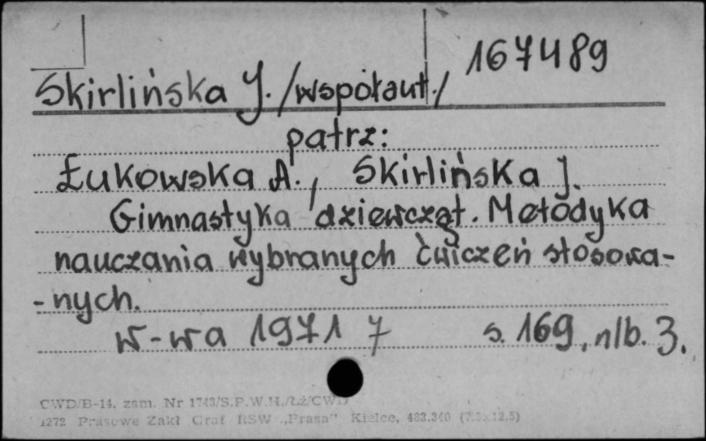 167489
Skirlińska J. /współaut./
patrz:
Łukowska A., Skirlińska J.
Gimnastyka dziewcząt. Metodyka
nauczania wybranych ćwiczeń stosowa-
-nych.
W-wa 1971 7 s. 169, nlb. 3.
CWD/B-14, zam. Nr 1743/S.P.W.H./Łź/CWD
1272 Prasowe Zakł Graf RSW „Prasa” Kielce, 483.340 (7.5x12.5)